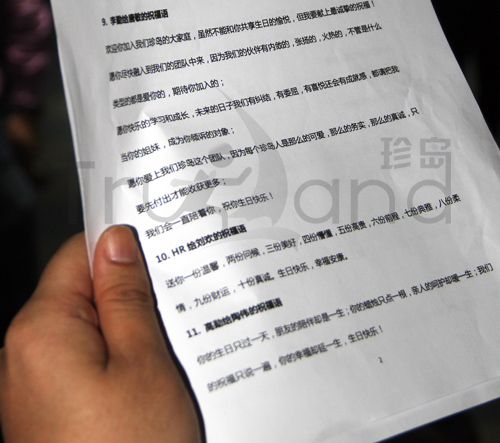 9. 李勤给唐敏的祝福语
欢迎你加入我们珍岛的大家庭，虽然不能和你共享生日的愉悦，但我要献上最诚挚的祝福！
愿你尽快融入到我们的团队中来，因为我们的伙伴有内敛的，张扬的，火热的，不管是什么
类型的都是爱你的，期待你加入的；
愿你快乐的学习和成长，未来的日子我们有纠结，有委屈，有喜悦还会有成就感，都请把我
当你的姐妹，成为你倾诉的对象；
愿你爱上我们珍岛这个团队，因为每个珍岛人是那么的可爱，那么的务实，那么的真诚，只
要先付出才能收获更多；
我们会一直陪着你，祝你生日快乐！
10. HR 给刘欢的祝福语
送你一份温馨，两份问候，三份美好，四份懵懂，五份高贵，六份前程，七份典雅，八份柔
情，九份财运，十份真诚。生日快乐，幸福安康。
11. 高勤给陶伟的祝福语
你的生日只过一天，朋友的陪伴却是一生；你的蜡烛只点一根，亲人的呵护却暖一生；我们
的祝福只说一遍，你的幸福却延一生，生日快乐！
2
珍岛
Trueland